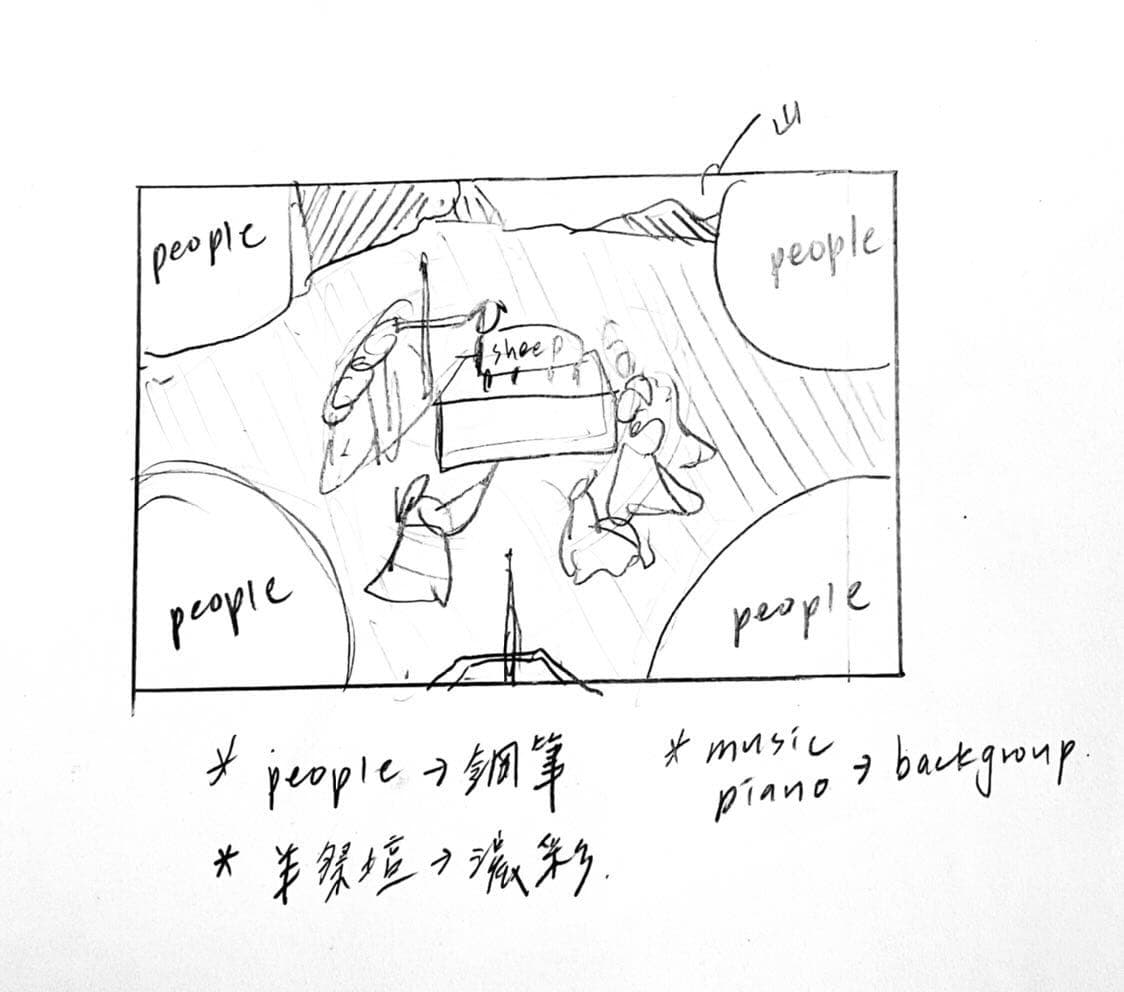 山
people
people
sheep
people
people
* people → 鋼筆
* music
piano → backgroup.
* 羊祭壇 → 濃彩.